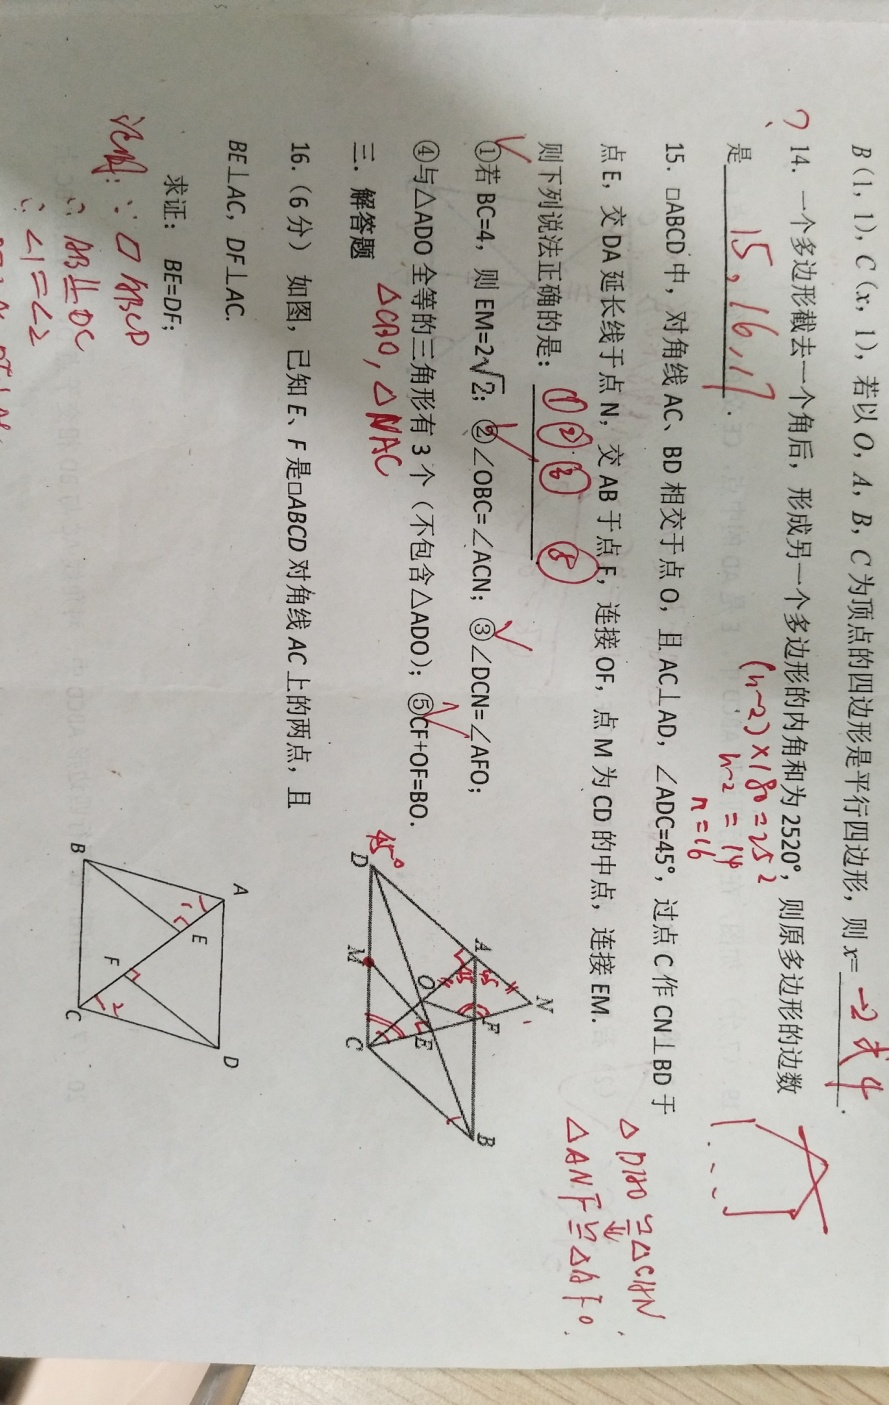 B(1, 1), C(x, 1), 若以 O, A, B, C 为顶点的四边形是平行四边形, 则 x= -2或4 .
14. 一个多边形截去一个角后, 形成另一个多边形的内角和为 2520°, 则原多边形的边数
是 15, 16, 17 .
(n-2)×180=252
n-2=14
n=16
15. □ABCD 中, 对角线 AC、BD 相交于点 O, 且 AC⊥AD, ∠ADC=45°, 过点 C 作 CN⊥BD 于
点 E, 交 DA 延长线于点 N, 交 AB 于点 F, 连接 OF, 点 M 为 CD 的中点, 连接 EM.
则下列说法正确的是: ①②③⑤
①若 BC=4, 则 EM=2√2; ②∠OBC=∠ACN; ③∠DCN=∠AFO;
④与△ADO 全等的三角形有 3 个 (不包含△ADO); ⑤CF+OF=BO.
△CBO, △NAC
△DAO≌△CAN
⇓
△ANF≌△AFO.
N
A 45 45 F
O E B
45° D M C
三. 解答题
16. (6 分) 如图, 已知 E、F 是□ABCD 对角线 AC 上的两点, 且
BE⊥AC, DF⊥AC.
求证: BE=DF;
证明: ∵ □ABCD
∴ AB∥=DC
∴ ∠1=∠2
A D
1 E
F 2
B C